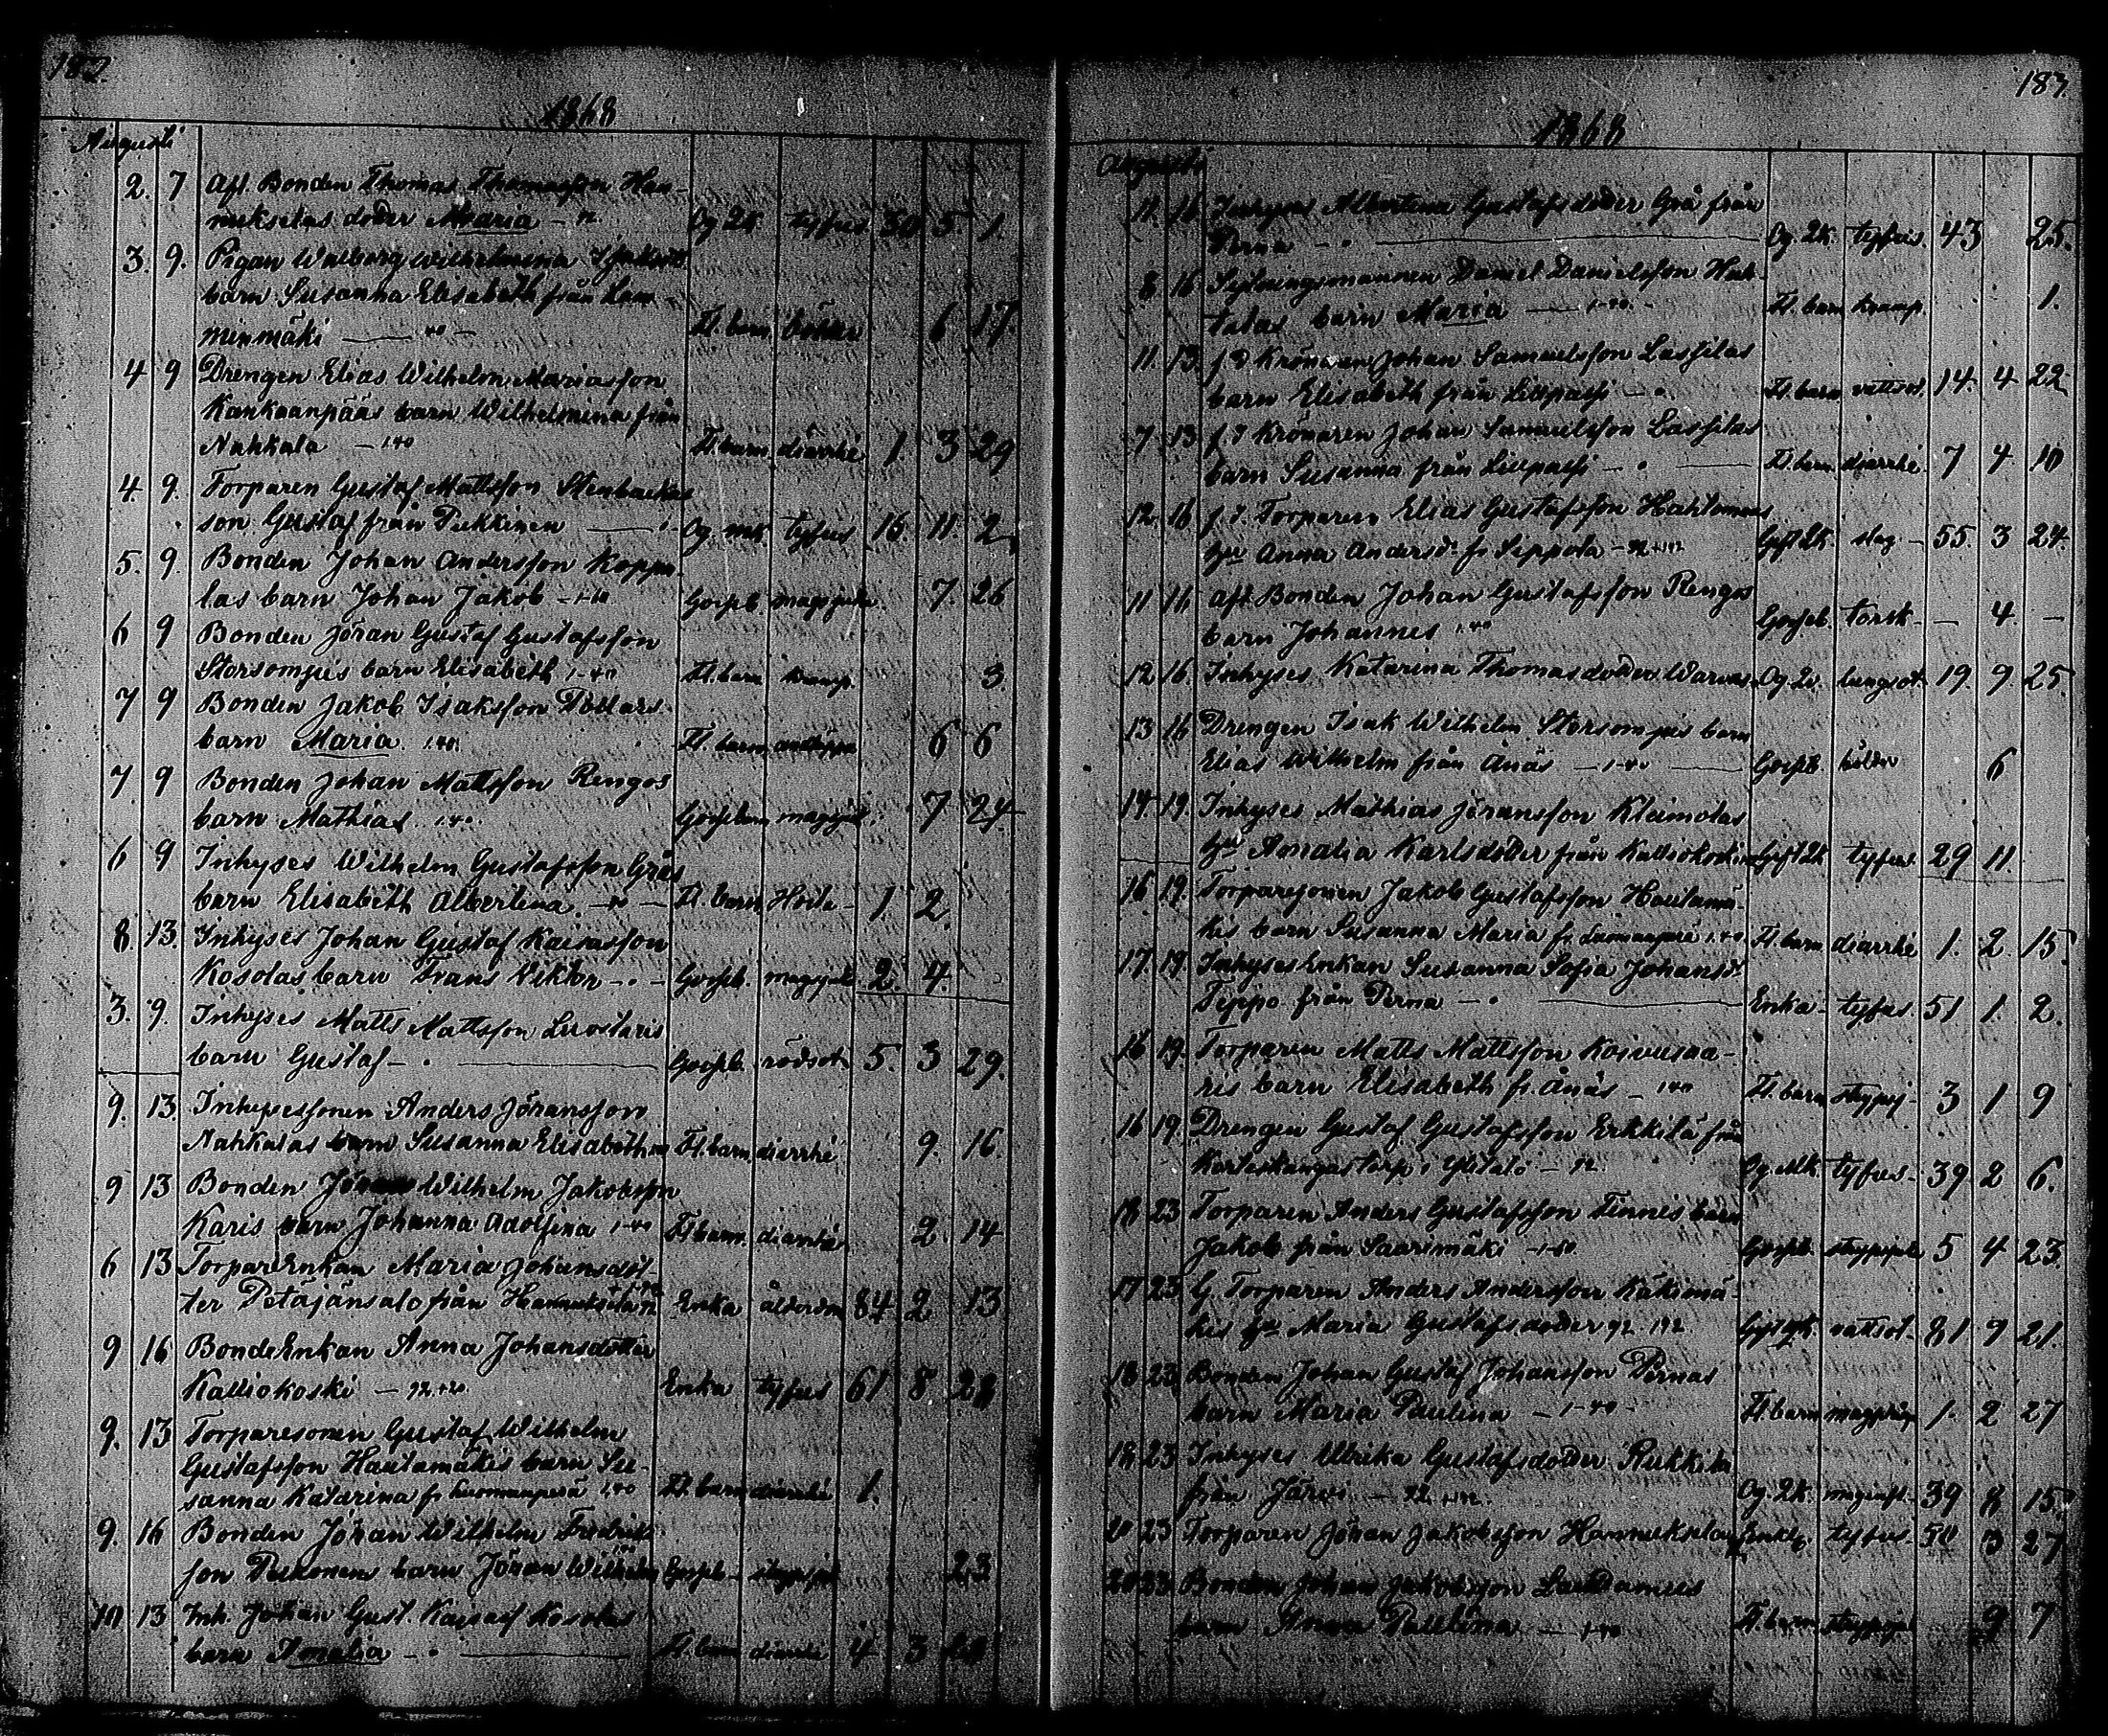 182
1868
Augusti
2. 7 Aft. Bonden Thomas Thomasson Han-
nukselas dotter Maria Og. Qk. tyfus. 50 5. 1.
3. 9. Pigan Walborg Wilhelmina
barn Susanna Elisabeth från Lam-
minmäki Fl. barn bölder 6 17.
4 9 Drengen Elias Wilhelm Mariasson
Kankaanpääs barn Wilhelmina från
Nahkala 1.40 Fl. barn diarrhé 1. 3 29
4. 9. Torparen Gustaf Mattsson Stenbackas
son Gustaf från Pukkinen Og. mk. tyfus 16. 11. 2
5. 9. Bonden Johan Andersson Koppe-
las barn Johan Jakob Gosseb. magsjuka 7. 26
6 9 Bonden Jöran Gustaf Gustafsson
Storsompis barn Elisabeth 1-40 Fl. barn kramp. 3.
7 9 Bonden Jakob Isaksson
barn Maria 1.40. Fl. barn 6 6
7. 9 Bonden Johan Mattsson Rengos
barn Mathias 1.40. Gossebarn magsjuk. 7 24
6 9 Inhyses Wilhelm Gustafsson Gräs
barn Elisabeth Albertina Fl. barn Hosta 1. 2.
8. 13. Inhyses Johan Gustaf Kaisasson
Kosolas barn Frans Viktor Gosseb. magsjuk 2. 4.
3. 9. Inhyses Matts Mattsson Luostaris
barn Gustaf Gosseb. rödsot 5. 3 29.
9. 13. Inhysessonen Anders Jöransson
Nahkalas barn Susanna Elisabeth Fl. barn. diarrhé 9. 16.
9 13 Bonden Jöran Wilhelm Jakobsson
Karis barn Johanna Adolfina 1-40 Fl barn. diarrhé 2. 14
6 13 TorpareEnkan Maria Johansdot-
ter Petäjänsalo från Hannuksela Enka ålderdom 84 2 13
9 16 BondeEnkan Anna Johansdotter
Kalliokoski Enka tyfus 61 8 28
9. 13 Torparesonen Gustaf Wilhelm
Gustafsson Hautamäkis barn Su-
sanna Katarina fr Luomanperä 1.40 Fl. barn diarrhé 1.
9. 16 Bonden Jöran Wilhelm Fredriks
son barn Jöran Wilhelm Gosseb. 23
10 13 Inh. Johan Gust. Kaisass Kosolas
barn Amalia Fl. barn diarrhé 4 3
183.
1868
Augusti
11. 16 Inhyses Albertina Gustafsdotter Grå från
Perna Og. Qk. tyfus. 43 25.
8 16 Sexmannen Daniel Danielsson
barn Maria 1-40. Fl. barn kramp. 1.
11. 13. f.d. Kronoren Johan Samuelsson Lassilas
barn Elisabeth från Liipassi Fl. barn vattsot. 14. 4 22
7 13 f.d. Kronoren Johan Samuelsson Lassilas
barn Susanna från Liipassi Fl. barn diarrhé. 7 4. 10
12 16 f.d. Torparen Elias Gustafsson Hahtomaas
hu Anna Andersdr fr Seppola Gift Qk. slag 55. 3 24.
11 16 Aft. Bonden Johan Gustafsson Rengos
barn Johannes 1.40 Gosseb. torsk 4.
12 16. Inhyses Katarina Thomasdotter Og. Qv. lungsot 19. 9. 25.
13 16 Drengen Isak Wilhelm Storsompis barn
Elias Wilhelm från Ånäs 1-40 Gosseb. bölder 6
14 19. Inhyses Mathias Jöransson Kleimolas
hu Amalia Karlsdotter från Kalliokoski Gift Qk tyfus 29 11.
16 19. Torparesonen Jakob Gustafsson Hautamä-
kis barn Susanna Maria fr Luomanperä 1.40 Fl. barn diarrhé 1. 2 15.
17. 19. InhysesEnkan Susanna Sofia Johansdr
Teppo från Perna Enka tyfus 51 1. 2.
16 19. Torparen Matts Mattsson Koivusaa-
ris barn Elisabeth fr. Ånäs 1.40 Fl. barn 3 1 9
16 19. Drengen Gustaf Gustafsson Erkkilä från
torp i Ylitalo Og. Mk. tyfus 39 2 6.
18 23 Torparen Anders Gustafsson Finnis barn
Jakob från Saarimäki Gosseb. 5 4 23.
17 23 G. Torparen Anders Andersson Käkimä-
kis hu Maria Gustafsdotter Gift vattsot 81 9 21.
18 23 Bonden Johan Gustaf Johansson Pernas
barn Maria Paulina 1-40 Fl. barn 1. 2 27
18 23 Inhyses Ulrika Gustafsdotter
från Järvi Og. Qk. 39 8 15.
20 23 Torparen Jöran Jakobsson Hannuksela Enkl. tyfus 50 3 27
20 23 Bonden Johan Jakobsson
barn Anna Paulina 1-40 Fl. barn 9 7